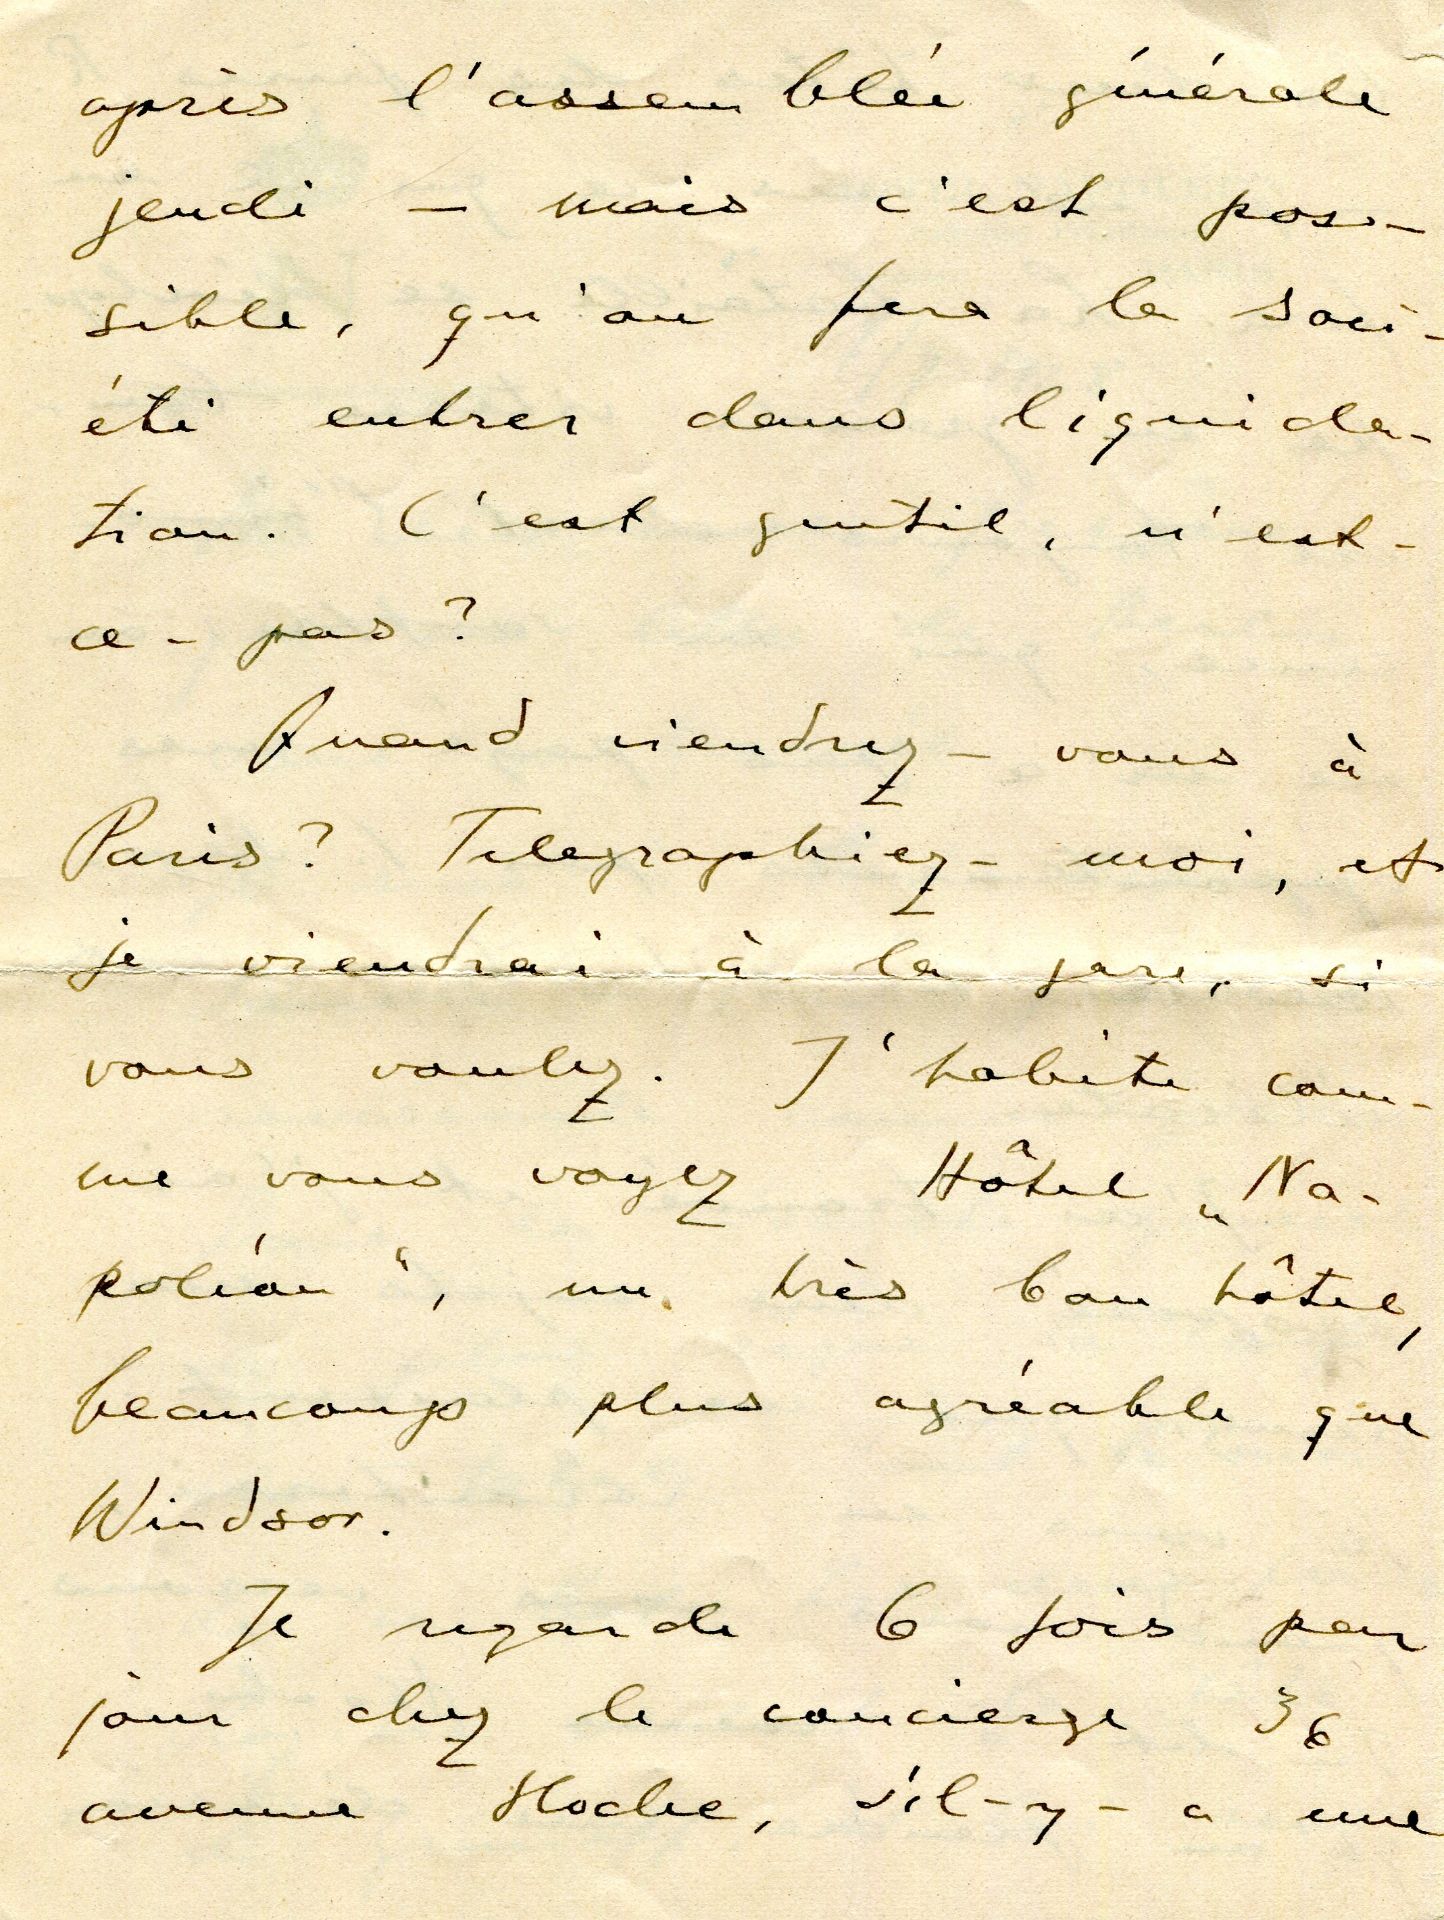 après l'assemblée générale
jeudi – mais c'est pos-
sible, qu'on fera la soci-
été entrer dans liquida-
tion. C'est gentil, n'est-
ce-pas?
Quand viendrez-vous à
Paris? Telegraphiez-moi, et
je viendrai à la gare, si
vous voulez. J'habite com-
me vous voyez Hôtel „Na-
poléon“, un très bon hôtel,
beaucoup plus agréable que
Windsor.
Je regarde 6 fois par
jour chez le concierge 36
avenue Hoche, s'il-y-a une